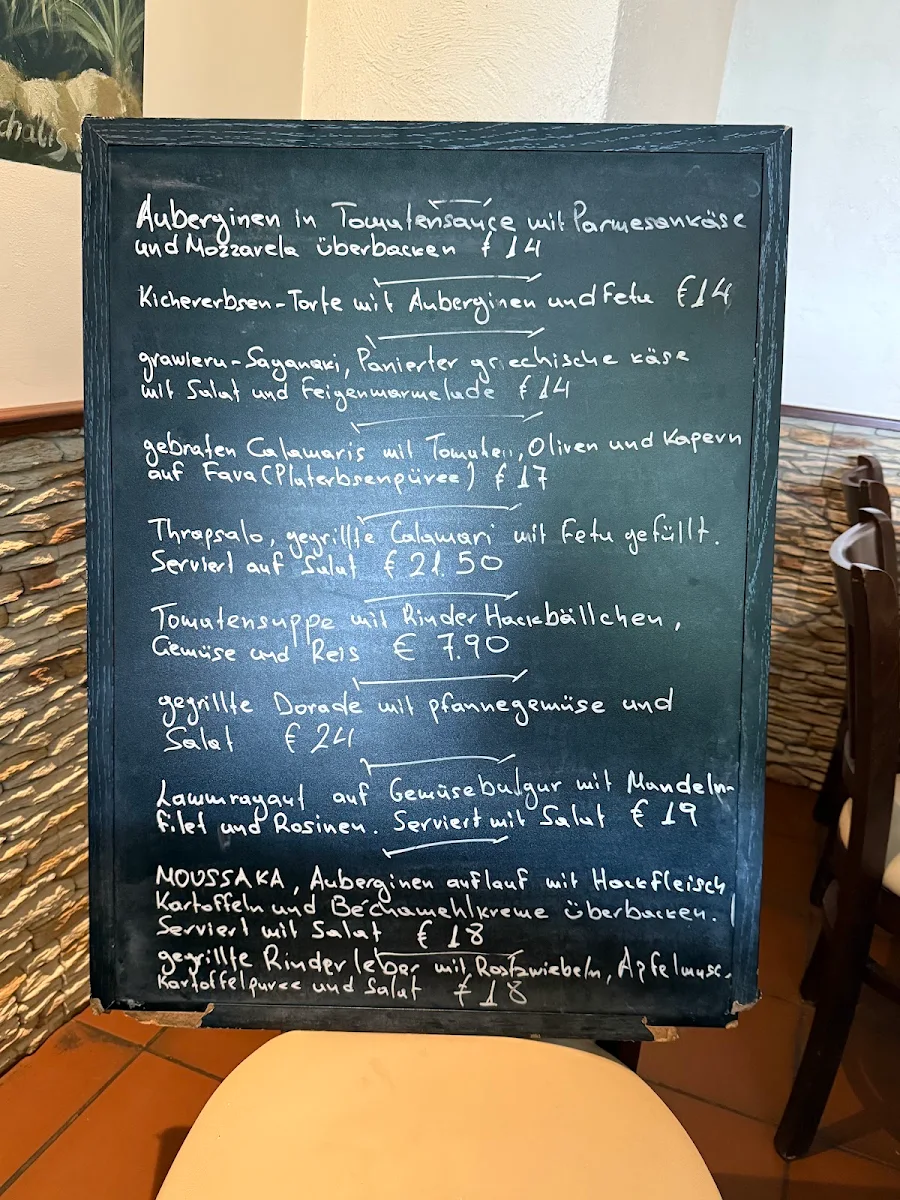 chalis
Auberginen in Tomatensauce mit Parmesankäse
und Mozzarela überbacken € 14
Kichererbsen-Torte mit Auberginen und Feta €14
grawieru-Saganaki, Panierter griechische käse
mit Salat und Feigenmarmelade € 14
gebraten Calamaris mit Tomaten, Oliven und Kapern
auf Fava (Platerbsenpüree) € 17
Thrapsalo, gegrillte Calamari mit Feta gefüllt.
Serviert auf Salat € 21.50
Tomatensuppe mit Rinder Hackbällchen,
Gemüse und Reis € 7.90
gegrillte Dorade mit pfannegemüse und
Salat € 24
Lammragaut auf Gemüsebulgur mit Mandeln-
filet und Rosinen. Serviert mit Salat € 19
MOUSSAKA, Auberginen auflauf mit Hackfleisch
Kartoffeln und Béchamehlkreme überbacken.
Serviert mit Salat € 18
gegrillte Rinder leber mit Rostzwiebeln, Apfelmusc.
Kartoffelpuree und Salat € 18